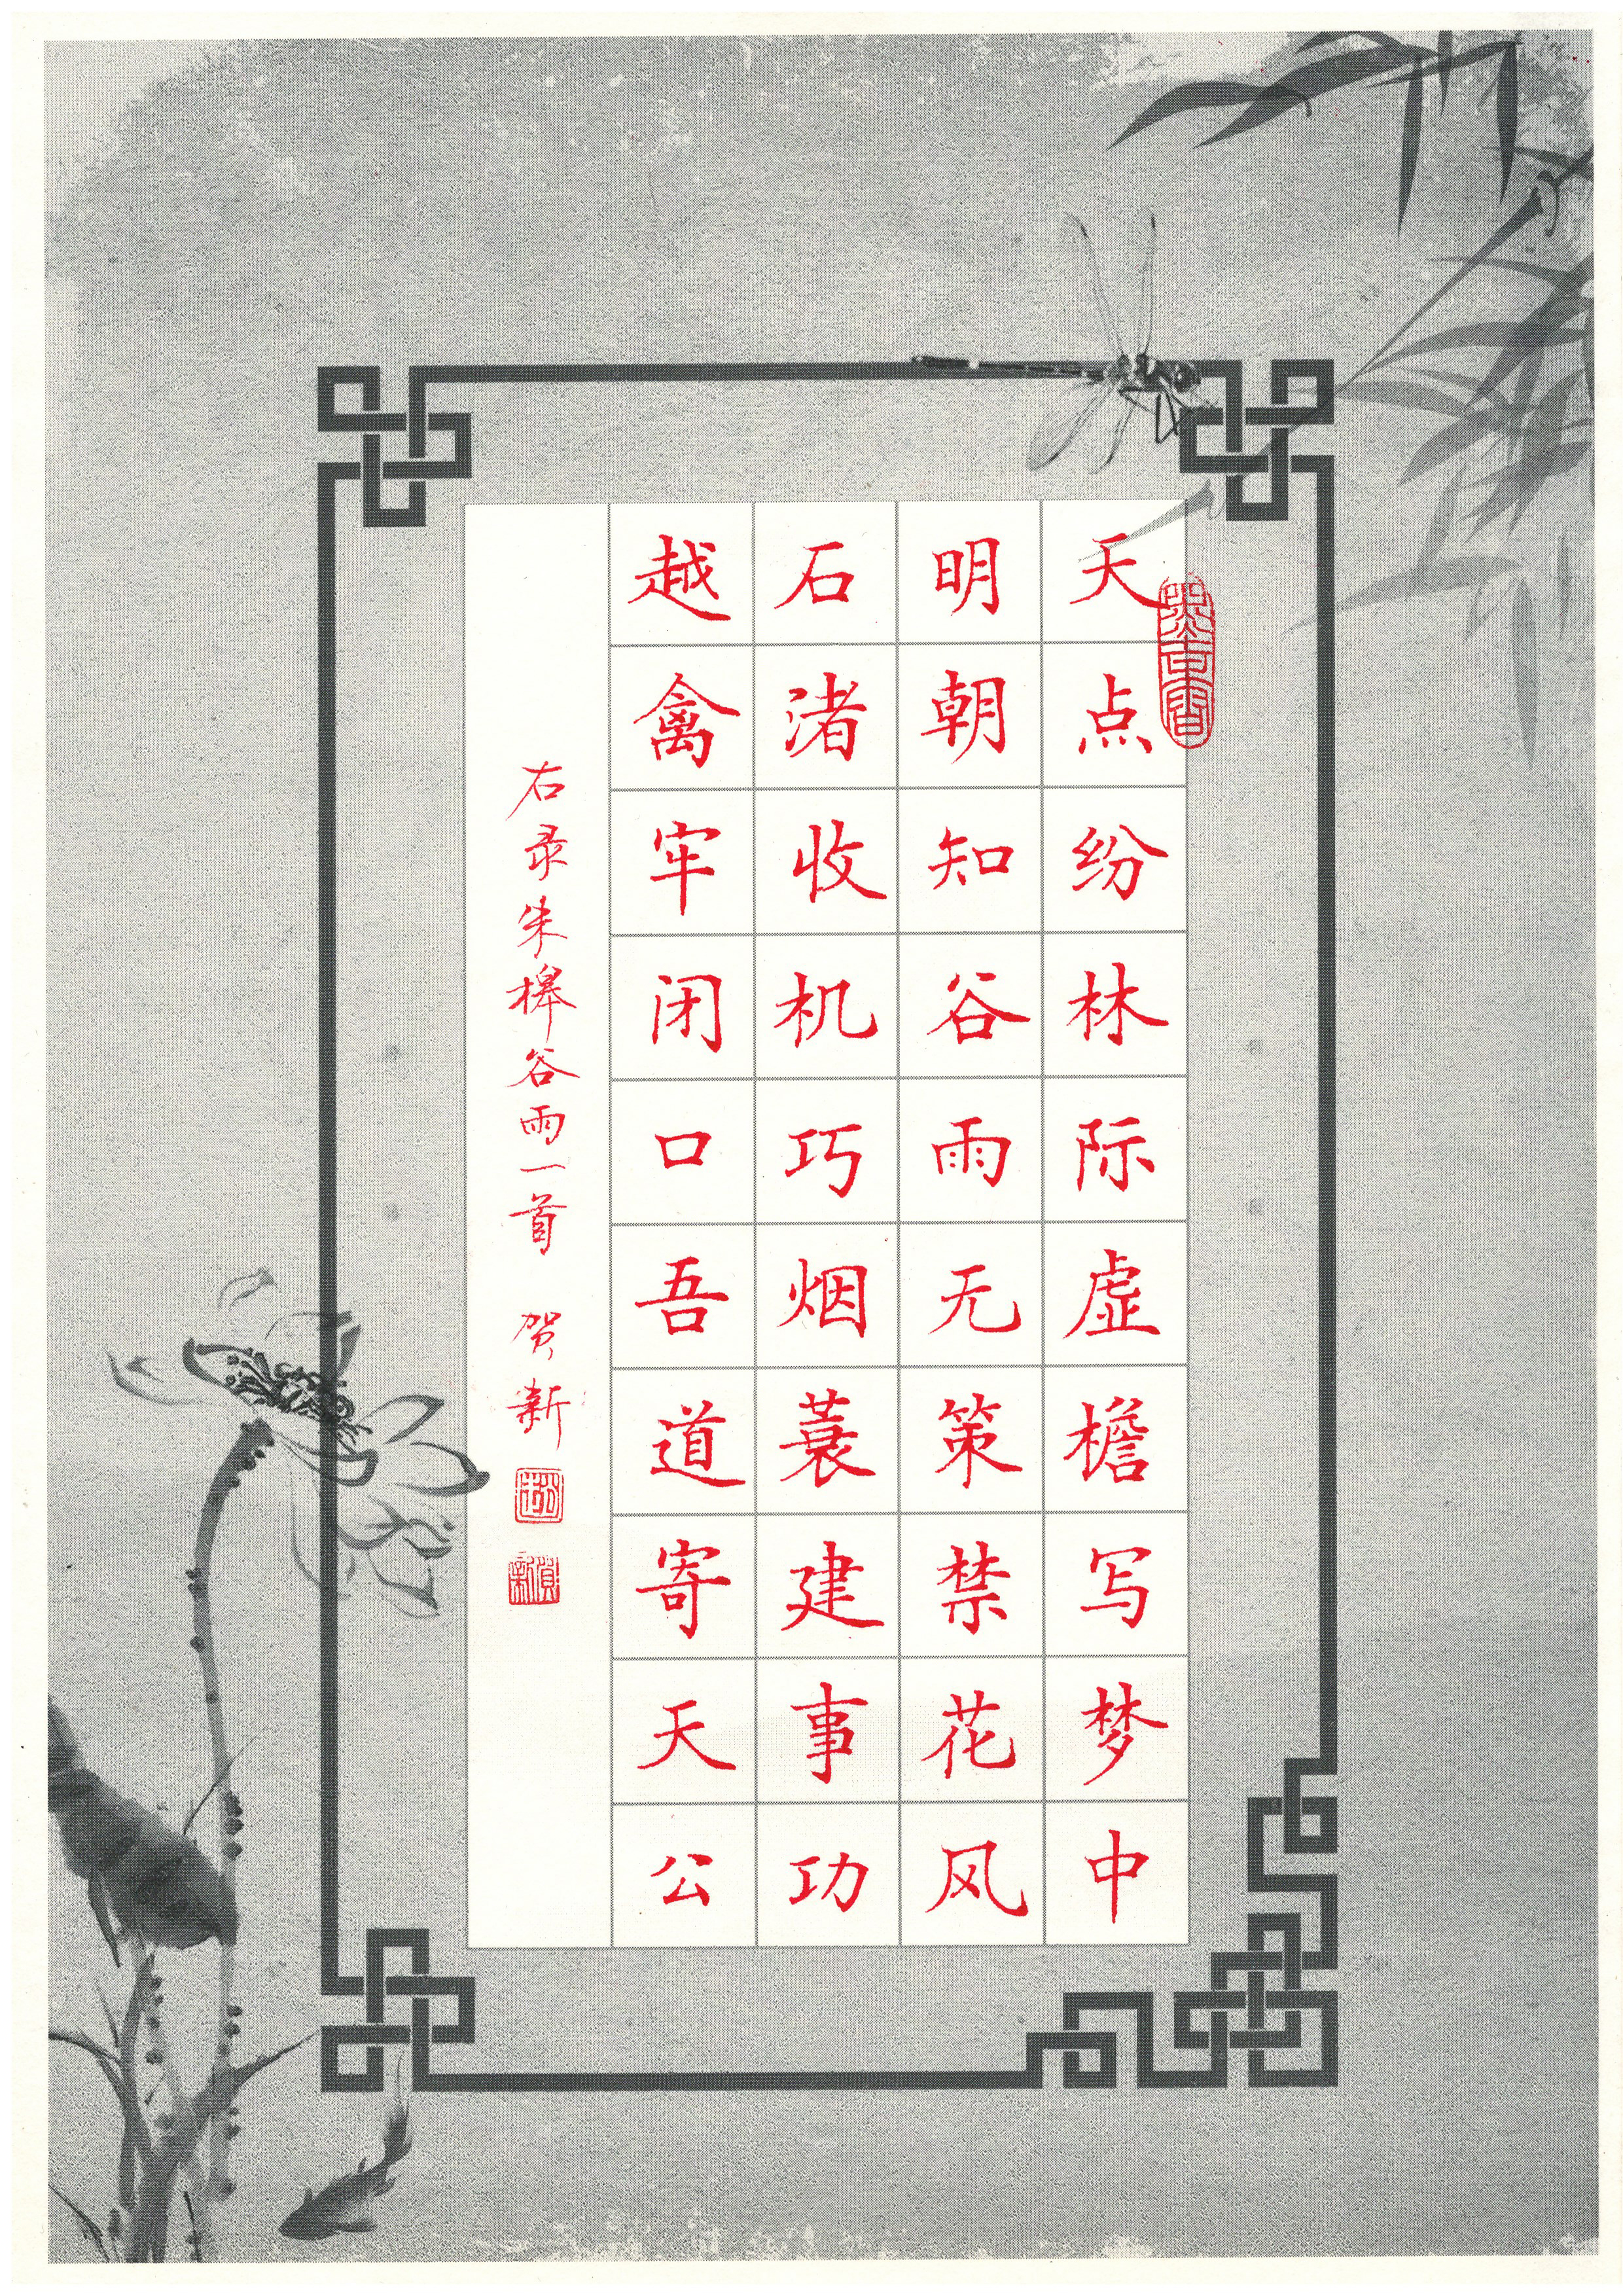 天点纷林际虚檐写梦中
明朝知谷雨无策禁花风
石渚收机巧烟蓑建事功
越禽牢闭口吾道寄天公
右录朱槔谷雨一首 贺新